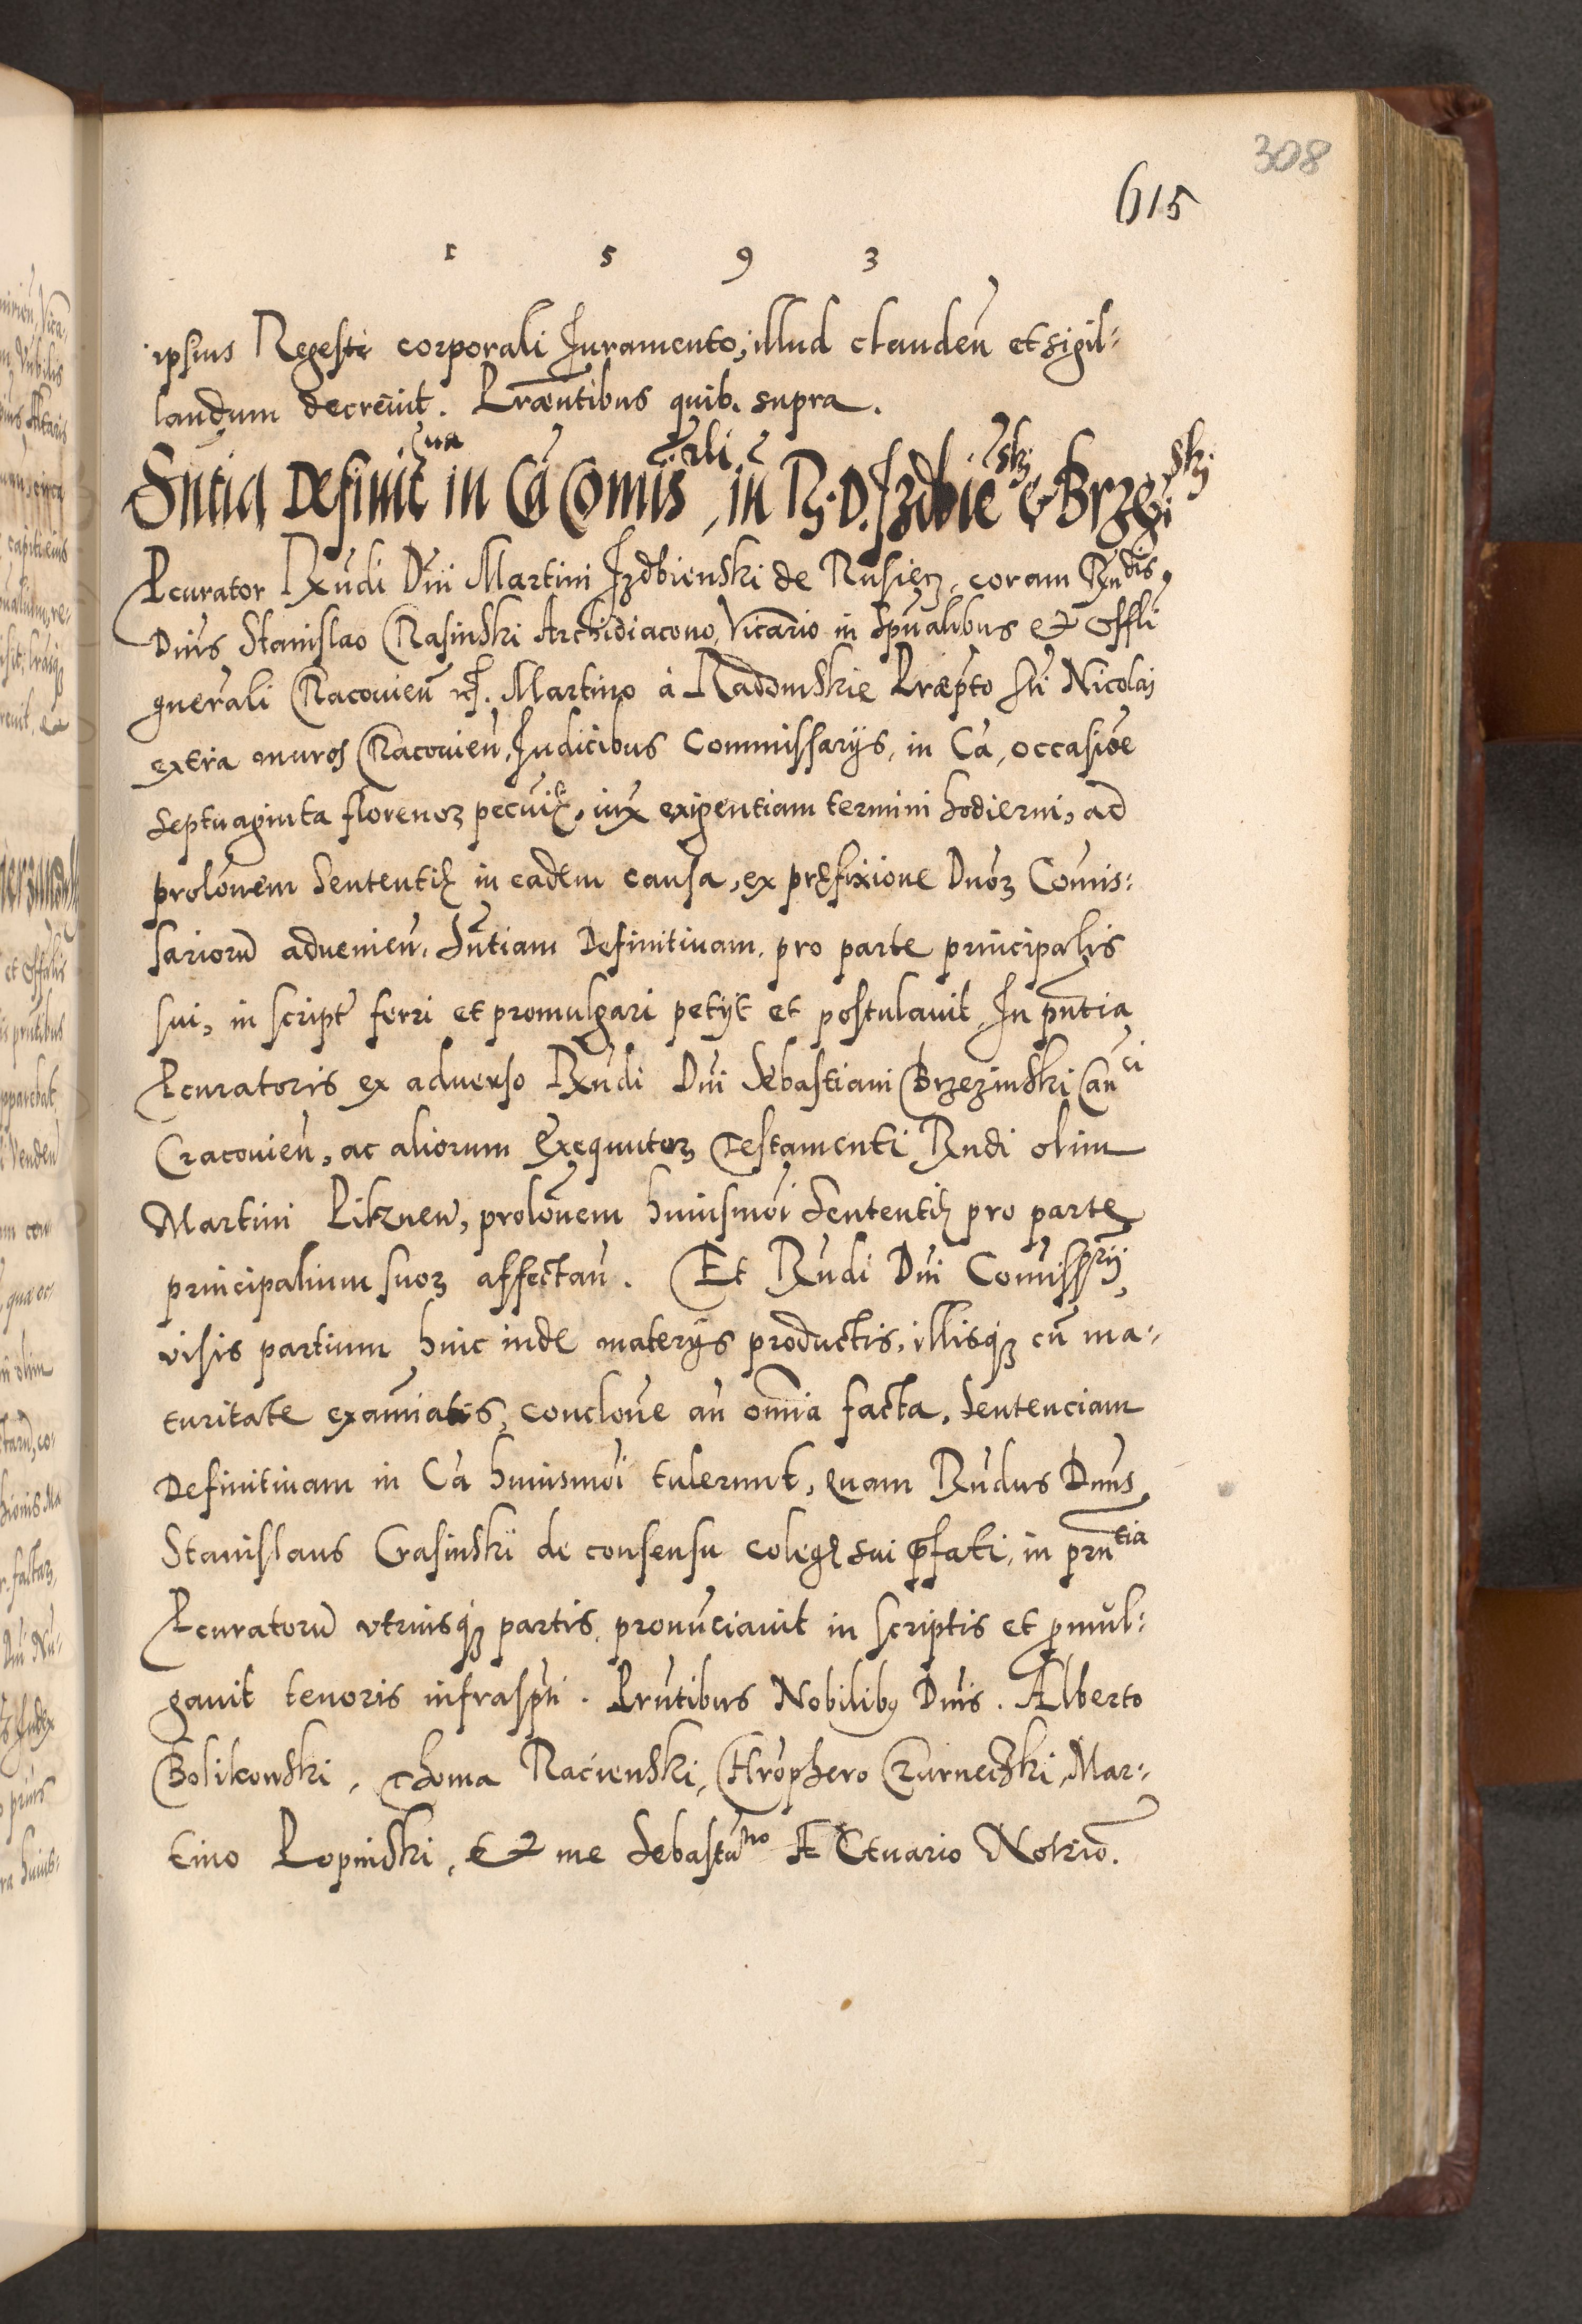 308
615
1 5 9 3
ipsius Regesti corporali Juramento, illud clauden̄ et sigil:
landum decreuit. Præn̄tibus quib. supra.
Sn̄tia Definit̄ua in Cā Com̄is, in R. D. Jzdbieski et Brzeski
Pcurator Rn̄di Dn̄i Martini Jzdbienski de Rusiecz, coram Rn̄dis
Dn̄is Stanislao Crasinski Archidiacono, Vicario in Spūalibus et Offli
gnerali Cracouien̄ et. Martino à Radomskie Præpto Sti Nicolai
extra muros Cracouien̄, Judicibus Commissarijs, in Cā, occasiōe
Septuaginta florenoꝝ pecuię, iux exigentiam termini hodierni, ad
prolōnem Sententię in eadem causa, ex pręfixione Dnoꝝ Com̄is:
sariorū aduenien̄. Sn̄tiam Definitiuam, pro parte principalis
sui, in script̄ ferri et promulgari petÿt et postulauit, In pn̄tia
Pcuratoris ex aduerso Rn̄di Dn̄i Sebastiani Brzezinski Canci
Cracouien̄, ac aliorum Exequutoꝝ Testamenti Rn̄di olim
Martini Pikznew, prolōnem huiusmōi Sententię pro parte
principalium suoꝝ affectan̄. Et Rn̄di Dn̄i Com̄issrij,
visis partium hinc inde materÿs productis, illisqꝫ cū ma:
turitate exam̄iatis, conclōne an̄ om̄ia facta, Sentenciam
Definitiuam in Cā huiusmōi tulerunt, quam Rn̄dus Dn̄us
Stanislaus Crasinski de consensu colegę sui p̄fati, in prn̄tia
Pcuratorū vtriusqꝫ partis, pronun̄ciauit in scriptis et pmul:
gauit tenoris infraspti. Prn̄tibus Nobilibꝯ Dn̄is. Alberto
Bolikowski, Thoma Racienski, Chrophero Czurneczki, Mar:
tino Lopinski, et me Sebastno Actuario Notrio.